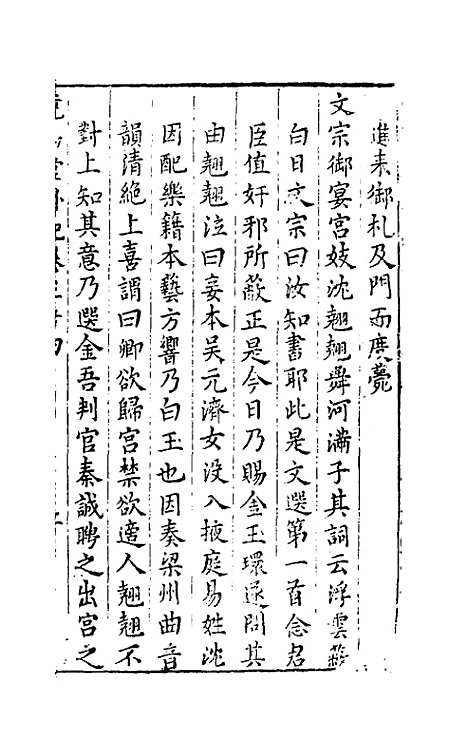 進來御札及門而虔薨
文宗御宴宮妓沈翹翹舞河滿子其詞云浮雲蔽
白日文宗曰汝知書耶此是文選第一首念君
臣值奸邪所蔽正是今日乃賜金玉環遂問其
由翹翹泣曰妾本吳元濟女没入掖庭易姓沈
因配樂籍本藝方響乃白玉也因奏梁州曲音
韻清絶上喜謂曰卿欲歸宮禁欲適人翹翹不
對上知其意乃選金吾判官秦誠聘之出宮之